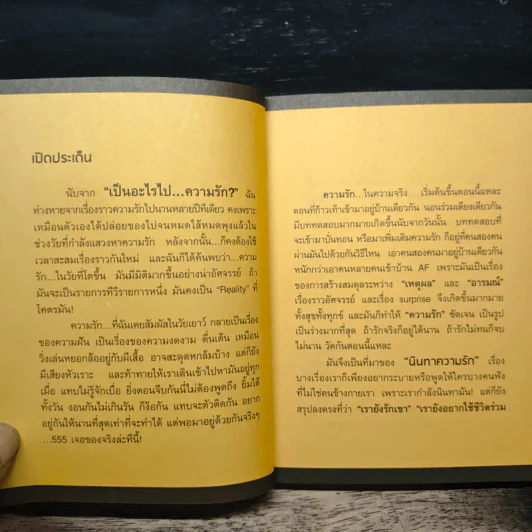 เปิดประเด็น
นับจาก "เป็นอะไรไป...ความรัก?" ฉัน
ห่างหายจากเรื่องราวความรักไปนานหลายปีทีเดียว คงเพราะ
เหมือนตัวเองได้ปล่อยของไปจนหมดไส้หมดพุงแล้วใน
ช่วงวัยที่กำลังแสวงหาความรัก หลังจากนั้น...ก็คงต้องใช้
เวลาสะสมเรื่องราวกันใหม่ และฉันก็ได้ค้นพบว่า...ความ
รัก...ในวัยที่โตขึ้น มันมีมิติมากขึ้นอย่างน่าอัศจรรย์ ถ้า
มันจะเป็นรายการทีวีรายการหนึ่ง มันคงเป็น "Reality" ที่
โคตรมัน!
ความรัก...ที่ฉันเคยสัมผัสในวัยเยาว์ กลายเป็นเรื่อง
ของความฝัน เป็นเรื่องของความงดงาม ตื่นเต้น เหมือน
วิ่งเล่นหยอกล้ออยู่กับผีเสื้อ อาจสะดุดหกล้มบ้าง แต่ก็ยัง
มีเสียงหัวเราะ และท้าทายให้เราเดินเข้าไปหามันอยู่ทุก
เมื่อ แทบไม่รู้จักเบื่อ ยิ่งตอนจีบกันนี่ไม่ต้องพูดถึง ยิ้มได้
ทั้งวัน งอนกันไม่เกินวัน ก็ง้อกัน แทบจะตัวติดกัน อยาก
อยู่กันให้นานที่สุดเท่าที่จะทำได้ แต่พอมาอยู่ด้วยกันจริงๆ
...555 เจอของจริงล่ะทีนี้!
ความรัก...ในความจริง เริ่มต้นขึ้นตอนนี้แหละ
ตอนที่ก้าวเท้าเข้ามาอยู่บ้านเดียวกัน นอนร่วมเตียงเดียวกัน
มีบททดสอบมากมายเกิดขึ้นนับจากวันนั้น บททดสอบที่
จะเข้ามาบั่นทอน หรือมาเพิ่มเติมความรัก ก็อยู่ที่คนสองคน
ผ่านมันไปด้วยกันวิธีไหน เอาคนสองคนมาอยู่บ้านเดียวกัน
หนักกว่าเอาคนหลายคนเข้าบ้าน AF เพราะมันเป็นเรื่อง
ของการสร้างสมดุลระหว่าง "เหตุผล" และ "อารมณ์"
เรื่องราวอัศจรรย์ และเรื่อง surprise จึงเกิดขึ้นมากมาย
ทั้งสุขทั้งทุกข์ และมันก็ทำให้ "ความรัก" ชัดเจน เป็นรูป
เป็นร่างมากที่สุด ถ้ารักจริงก็อยู่ได้นาน ถ้ารักไม่ทนก็จบ
ไม่นาน วัดกันตอนนี้แหละ
มันจึงเป็นที่มาของ "นินทาความรัก" เรื่อง
บางเรื่องเราก็เพียงอยากระบายหรือพูดให้ใครบางคนฟัง
ที่ไม่ใช่คนข้างกายเรา เพราะเรากำลังนินทามัน! แต่ก็ยัง
สรุปลงตรงที่ว่า "เรายังรักเขา" "เรายังอยากใช้ชีวิตร่วม